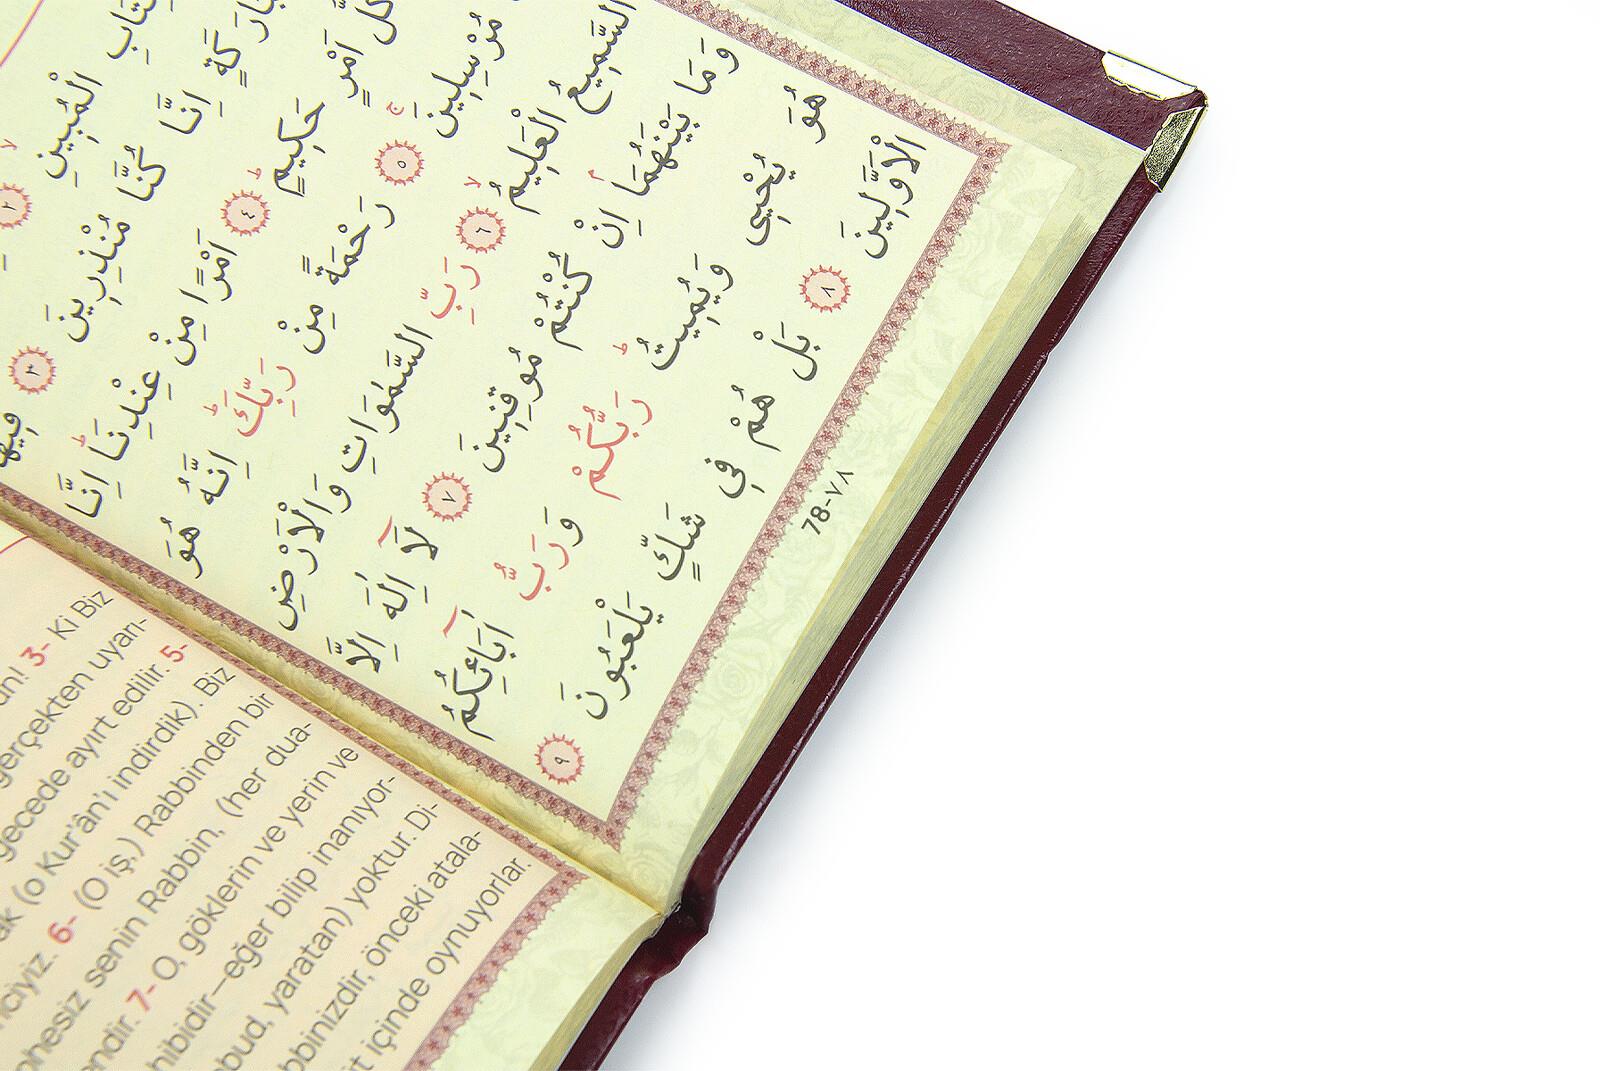 الْمُبِينِۙ ﴿٢﴾
اِنَّا كُنَّا مُنْذِرِينَ ﴿٣﴾ فِيهَا
كُلُّ اَمْرٍ حَكِيمٍۜ ﴿٤﴾ اَمْرًا مِنْ عِنْدِنَاۜ اِنَّا
مُرْسِلِينَۚ ﴿٥﴾ رَحْمَةً مِنْ رَبِّكَۜ اِنَّهُ هُوَ
السَّمِيعُ الْعَلِيمُۙ ﴿٦﴾ رَبِّ السَّمٰوَاتِ وَالْاَرْضِ
وَمَا بَيْنَهُمَاۢ اِنْ كُنْتُمْ مُوقِنِينَ ﴿٧﴾ لَٓا اِلٰهَ اِلَّا
هُوَ يُحْيِي وَيُمِيتُۜ رَبُّكُمْ وَرَبُّ اٰبَٓائِكُمُ
الْاَوَّلِينَ ﴿٨﴾ بَلْ هُمْ فِي شَكٍّ يَلْعَبُونَ ﴿٩﴾
78-٧٨
3- Ki Biz
gerçekten uyarı-
gecede ayırt edilir. 5-
(o Kur'ân'ı indirdik). Biz
6- (O iş,) Rabbinden bir
senin Rabbin, (her dua-
7- O, göklerin ve yerin ve
hibidir—eğer bilip inanıyor-
bud, yaratan) yoktur. Di-
bbinizdir, önceki atala-
içinde oynuyorlar.